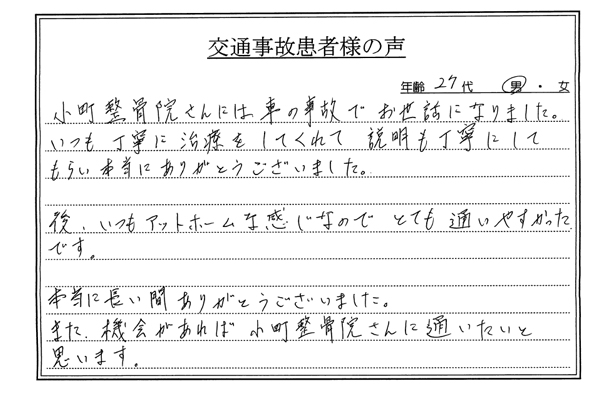 交通事故患者様の声
年齢 27代 男・女
小町整骨院さんには車の事故でお世話になりました。
いつも丁寧に治療をしてくれて 説明も丁寧にして
もらい本当にありがとうございました。
後、いつもアットホームな感じなので とても通いやすかった
です。
本当に長い間ありがとうございました。
また、機会があれば 小町整骨院さんに通いたいと
思います。